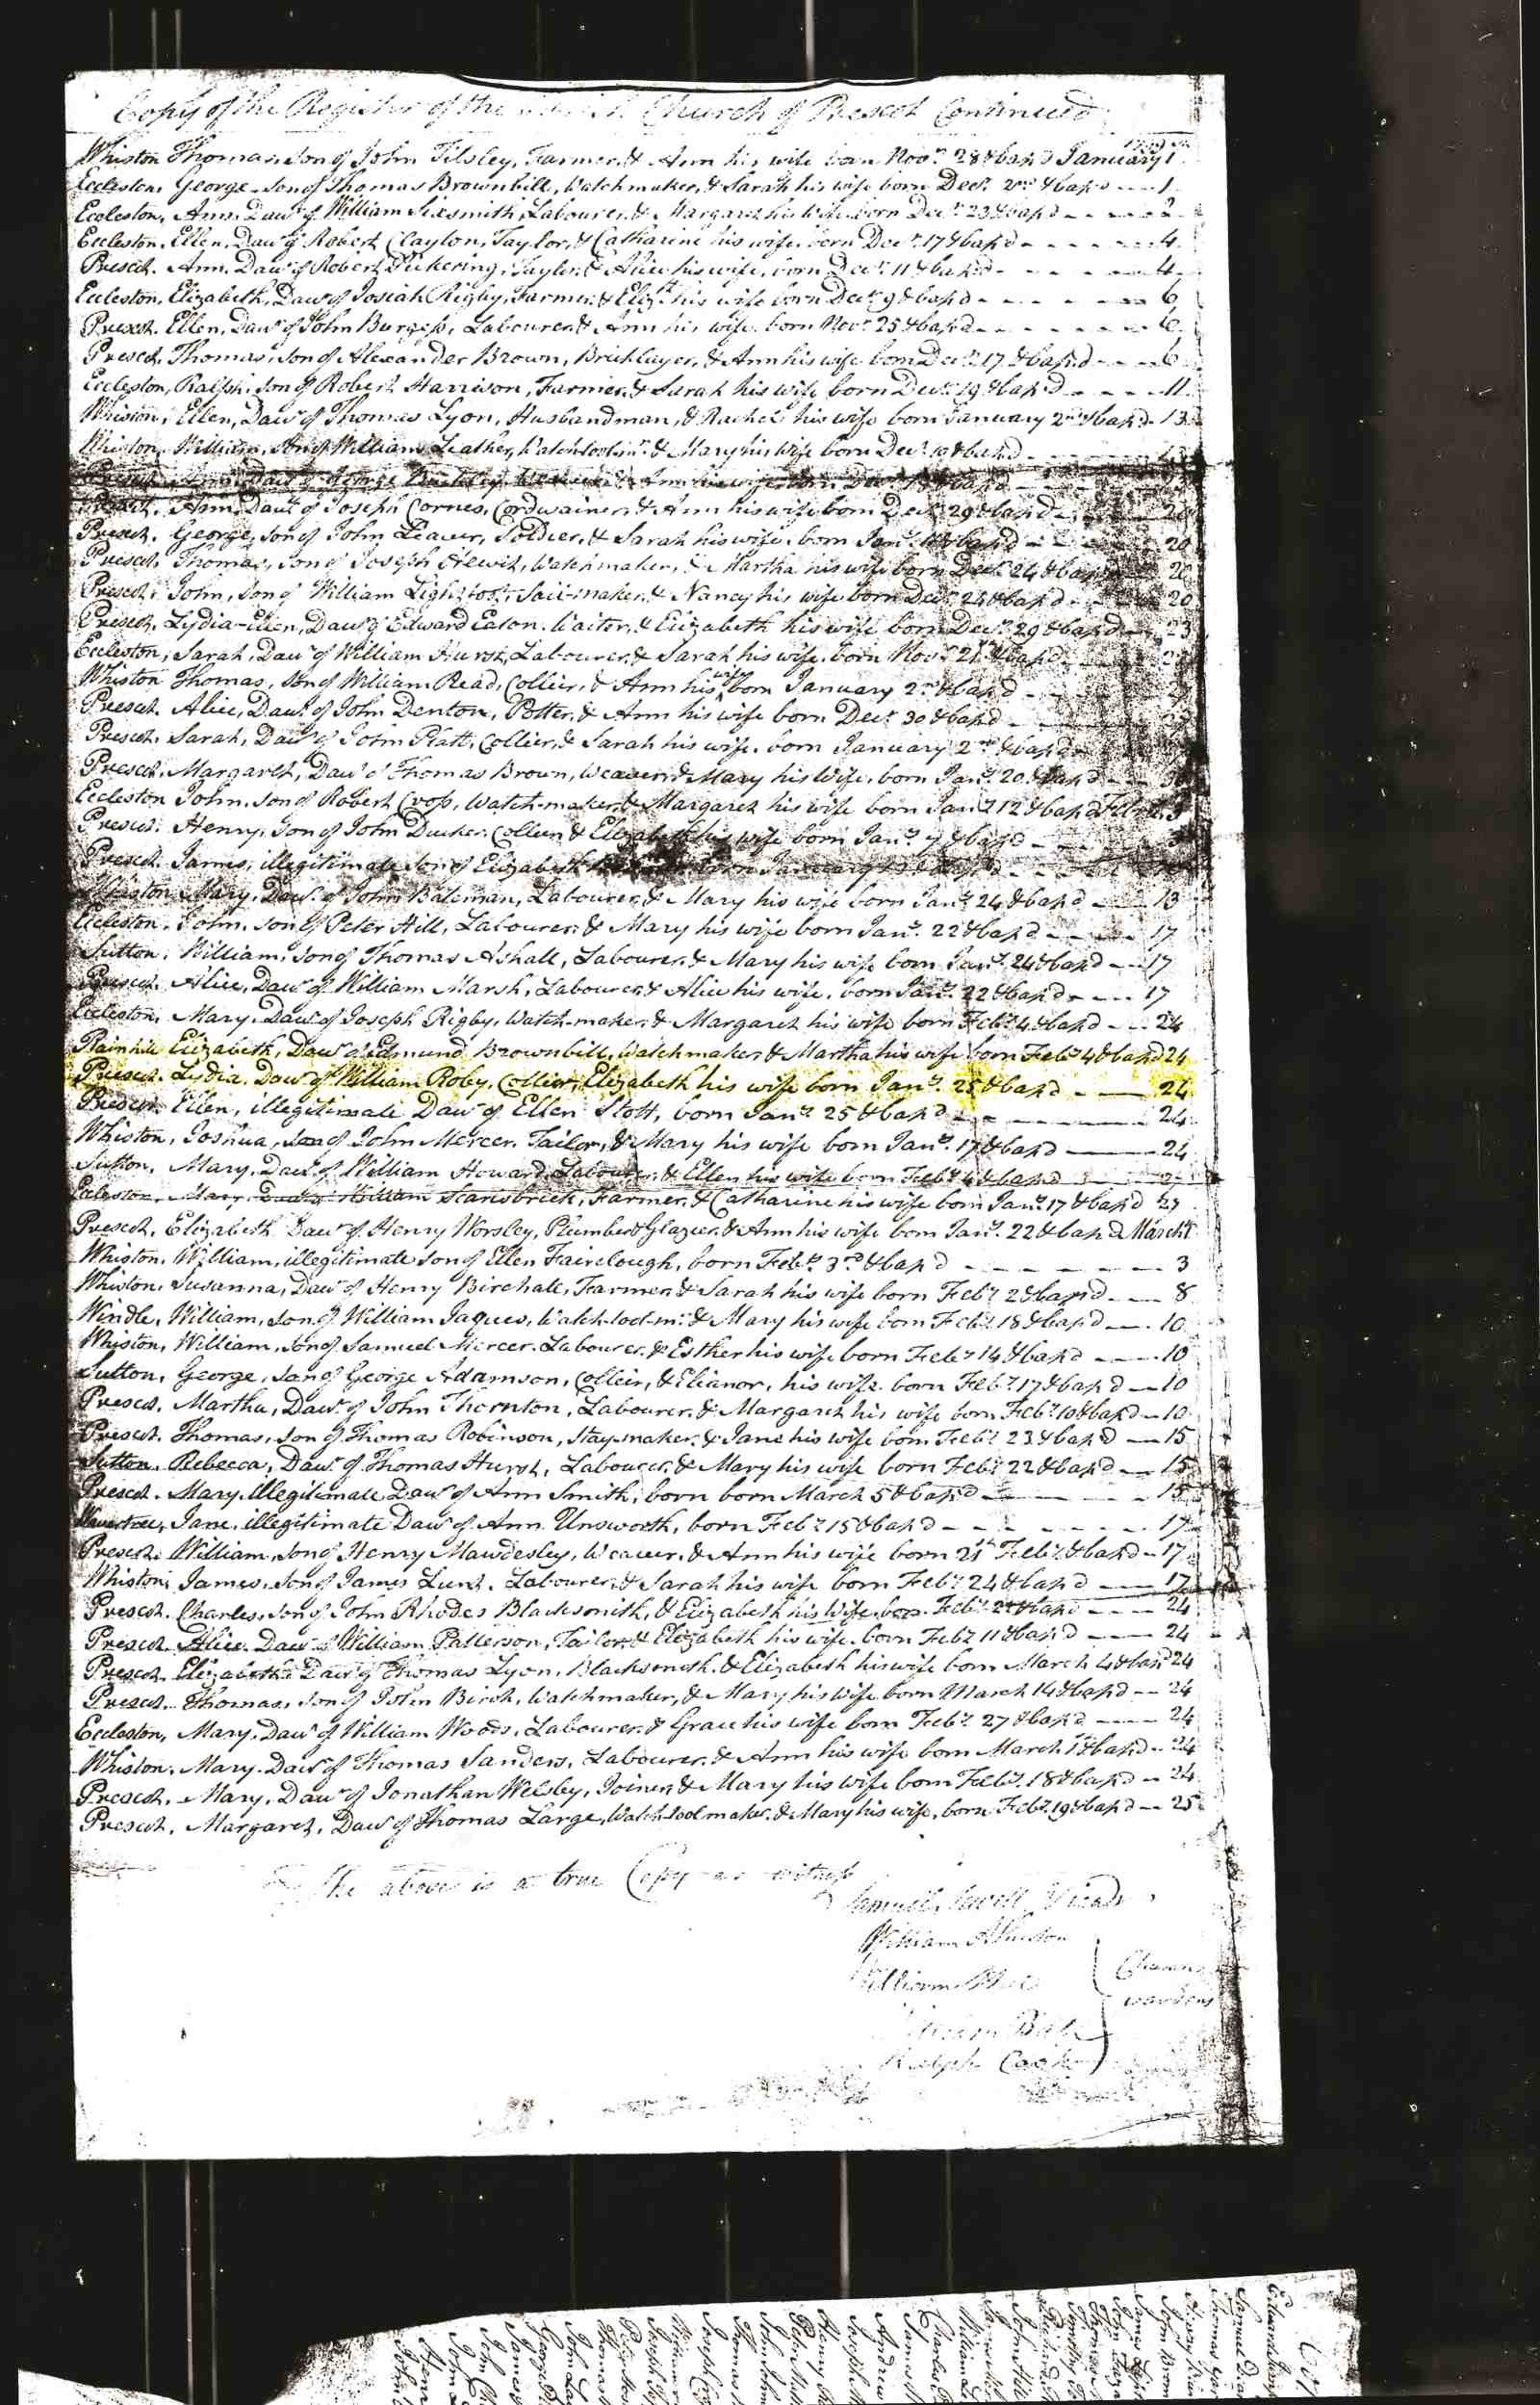 Copy of the Register of the Church of Prescot Continued
Whiston Thomas, son of John Tilsley, Farmer, & Ann his wife born Novr. 28 & bap'd January 1
Eccleston, George son of Thomas Brownbill, Watchmaker, & Sarah his wife born Decr. 2nd & bap'd 1
Eccleston, Ann, Dawr. of William Sixsmith, Labourer, & Margaret his wife born Decr. 23 & bap'd 2
Eccleston, Ellen, Dawr. of Robert Clayton, Taylor, & Catharine his wife, born Decr. 17 & bap'd 4
Prescot. Ann, Dawr. of Robert Pickering, Taylor, & Alice his wife, born Decr. 11 & bap'd 4
Eccleston, Elizabeth, Dawr. of Josiah Rigby, Farmer, & Elizth. his wife born Decr. 9 & bap'd 6
Prescot. Ellen, Dawr. of John Burgess, Labourer, & Ann his wife. born Novr. 25 & bap'd 6
Prescot, Thomas, son of Alexander Brown, Bricklayer, & Ann his wife born Decr. 17 & bap'd 6
Eccleston, Ralph, son of Robert Harrison, Farmer, & Sarah his wife born Decr. 19 & bap'd 11
Whiston, Ellen, Dawr. of Thomas Lyon, Husbandman, & Rachel his wife born January 2nd & bap'd 13
Whiston, William, son of William Leather, Watch-tool-mr. & Mary his wife born Decr. 10 & bap'd
Prescot Ann Dawr. of George & Ann his wife born Decr. & bap'd
Prescot, Ann, Dawr. of Joseph Cornes, Cordwainer, & Ann his wife born Decr. 29 & bap'd 20
Prescot. George, son of John Leaver, Soldier, & Sarah his wife, born Jany. & bap'd 20
Prescot. Thomas, son of Joseph Hewit, Watchmaker, & Martha his wife born Decr. 24 & bap'd 20
Prescot. John, son of William Lightfoot, Sail-maker, & Nancy his wife born Decr. 24 & bap'd 20
Prescot. Lydia-Ellen, Dawr. of Edward Eaton. Waiter, & Elizabeth his wife born Decr. 29 & bap'd 23
Eccleston, Sarah, Dawr. of William Hurst, Labourer, & Sarah his wife, born Novr. 21 & bap'd
Whiston Thomas, son of William Read, Collier, & Ann his wife born January 2nd & bap'd
Prescot. Alice, Dawr. of John Denton, Potter, & Ann his wife born Decr. 30 & bap'd
Prescot. Sarah, Dawr. of John Platt, Collier, & Sarah his wife. born January 2nd & bap'd
Prescot. Margaret, Dawr. of Thomas Brown, Weaver, & Mary his wife, born Jany. 20 & bap'd
Eccleston John, son of Robert Cross, Watch-maker, & Margaret his wife born Jany. 12 & bap'd Feby. 3
Prescot. Henry, son of John Ducker, Collier & Elizabeth his wife born Jany. 7 & bap'd
Prescot. James, illegitimate son of Elizabeth born January & bap'd
Whiston Mary, Dawr. of John Bateman, Labourer, & Mary his wife born Jany. 24 & bap'd 13
Eccleston. John, son of Peter Hill, Labourer, & Mary his wife born Jany. 22 & bap'd 17
Sutton, William, son of Thomas Ashall, Labourer, & Mary his wife born Jany. 24 & bap'd 17
Prescot. Alice, Dawr. of William Marsh, Labourer, & Alice his wife, born Jany. 22 & bap'd 17
Eccleston, Mary, Dawr. of Joseph Rigby, Watch-maker, & Margaret his wife born Feby. 4 & bap'd 24
Rainhill Elizabeth, Dawr. of Edmund Brownbill, Watchmaker & Martha his wife born Feby. 4 & bap'd 24
Prescot. Lydia, Dawr. of William Roby, Collier, Elizabeth his wife born Jany. 25 & bap'd 24
Prescot. Ellen, illegitimate Dawr. of Ellen Stott, born Jany. 25 & bap'd 24
Whiston, Joshua, son of John Mercer, Tailor, & Mary his wife born Jany. 17 & bap'd 24
Sutton, Mary, Dawr. of William Howard, Labourer, & Ellen his wife born Feby. 4 & bap'd
Eccleston, Mary, Dawr. of William Scarisbrick, Farmer, & Catharine his wife born Jany. 17 & bap'd 27
Prescot, Elizabeth Dawr. of Henry Worsley, Plumber & Glazier, & Ann his wife born Jany. 22 & bap'd March 1
Whiston, William, illegitimate son of Ellen Fairclough, born Feby. 3rd & bap'd 3
Whiston, Susanna, Dawr. of Henry Birchall, Farmer, & Sarah his wife born Feby. 2 & bap'd 8
Windle, William, son of William Jaques, Watch-tool-mr. & Mary his wife born Feby. 18 & bap'd 10
Whiston, William, son of Samuel Mercer Labourer, & Esther his wife born Feby. 14 & bap'd 10
Sutton, George, son of George Adamson, Collier, & Elianor, his wife. born Feby. 17 & bap'd 10
Prescot. Martha, Dawr. of John Thornton, Labourer, & Margaret his wife born Feby. 10 & bap'd 10
Prescot. Thomas, son of Thomas Robinson, Stay-maker, & Jane his wife born Feby. 23 & bap'd 15
Sutton. Rebecca, Dawr. of Thomas Hurst, Labourer, & Mary his wife born Feby. 22 & bap'd 15
Prescot. Mary. Illegitimate Dawr. of Ann Smith, born born March 5 & bap'd 15
Wavertree, Jane, illegitimate Dawr. of Ann Unsworth, born Feby. 15 & bap'd 17
Prescot. William, son of Henry Mawdesley, Weaver, & Ann his wife born 21st Feby. & bap'd 17
Whiston, James, son of James Lunt. Labourer, & Sarah his wife born Feby. 24 & bap'd 17
Prescot. Charles, son of John Rhodes Blacksmith, & Elizabeth his wife born Feby. & bap'd 24
Prescot Alice Dawr. of William Patterson, Tailor, & Elizabeth his wife. born Feby. 11 & bap'd 24
Prescot, Elizabeth Dawr. of Thomas Lyon, Blacksmith, & Elizabeth his wife born March 4 & bap'd 24
Prescot. Thomas, son of John Birch, Watchmaker, & Mary his wife born March 14 & bap'd 24
Eccleston, Mary, Dawr. of William Woods, Labourer, & Grace his wife born Feby. 27 & bap'd 24
Whiston. Mary. Dawr. of Thomas Sanders, Labourer, & Ann his wife born March 1st & bap'd 24
Prescot. Mary, Dawr. of Jonathan Welsby, Joiner, & Mary his wife born Feby. 18 & bap'd 24
Prescot. Margaret, Dawr. of Thomas Large, Watch-tool maker, & Mary his wife, born Feby. 19 & bap'd 25
The above is a true Copy as witness
Samuel Sewell Vicar
William
William
Church
wardens
Ralph Cook